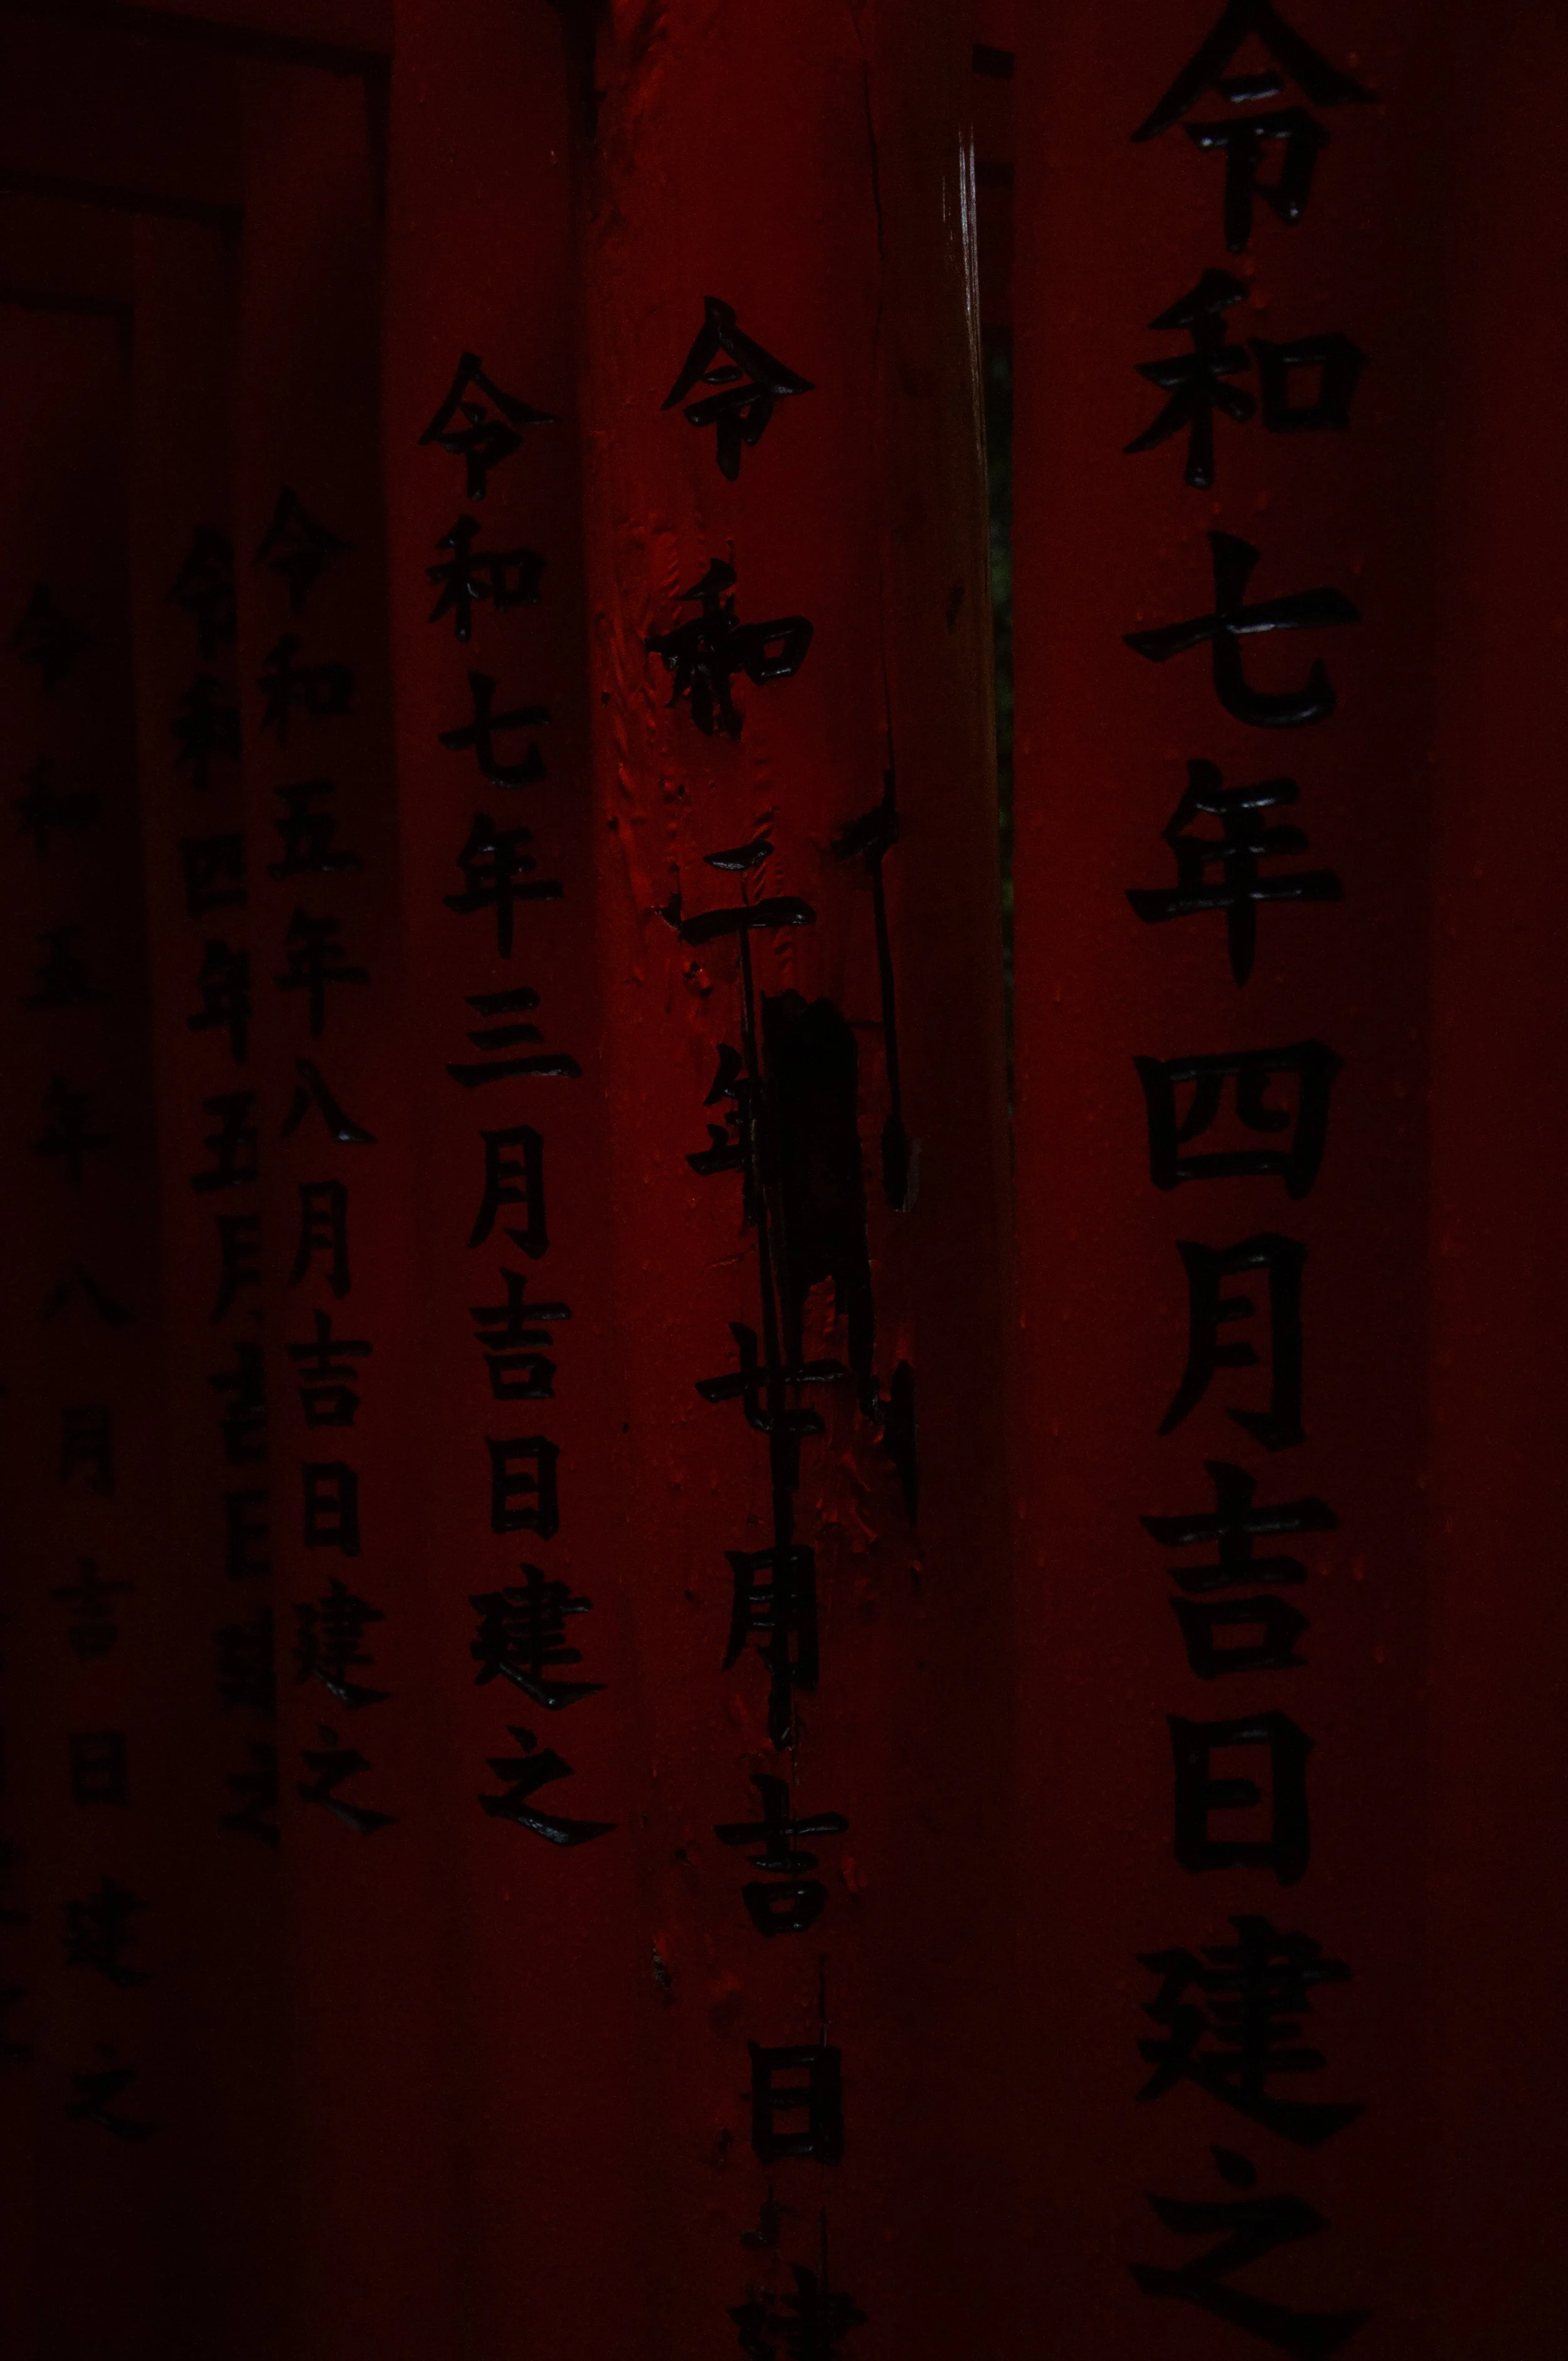 令和七年四月吉日建之
令和二年七月吉日建
令和七年三月吉日建之
令和五年八月吉日建之
令和四年五月吉日建之
令和五年八月吉日建之